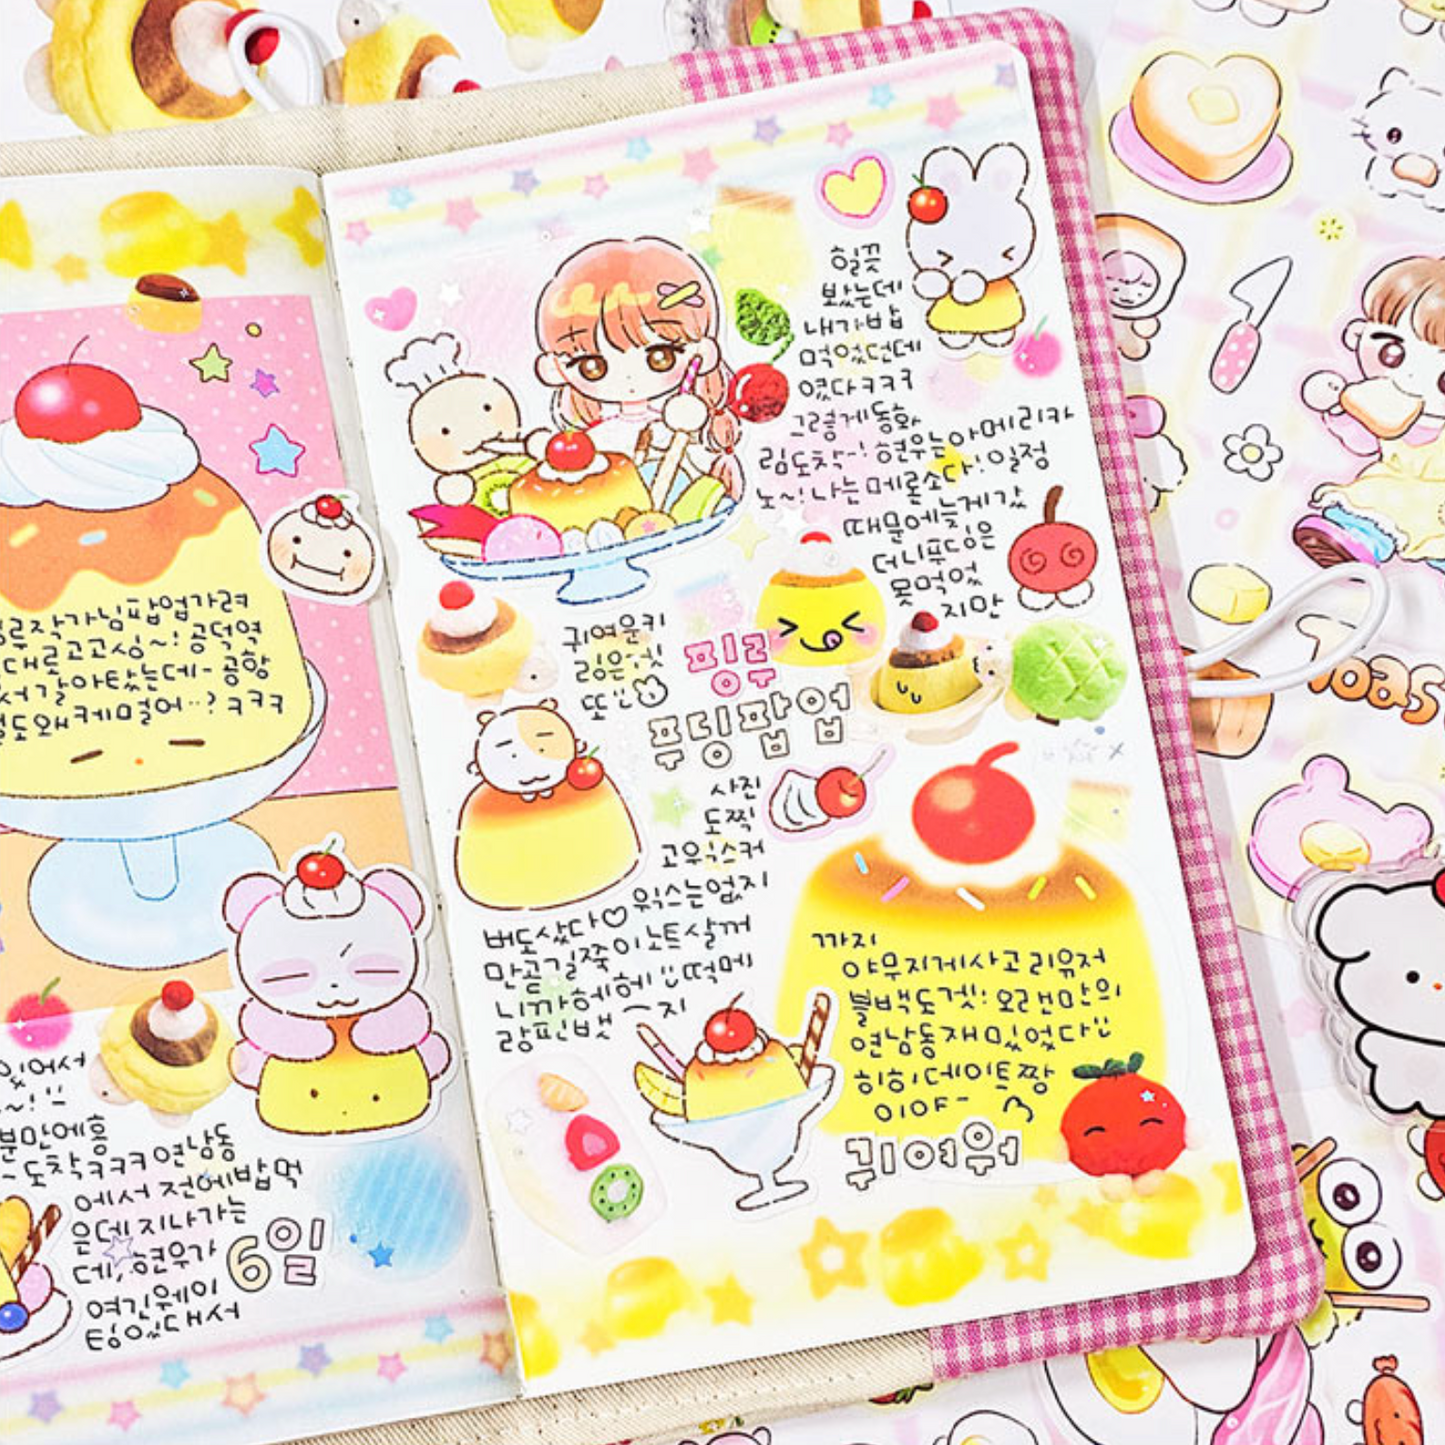 루작가님팝업가려
대로고고싱~! 공덕역
서갈아탔는데- 공항
도왜케멀어..? ㅋㅋㅋ
있어서
~!
분만에홍
도착ㅋㅋㅋ 연남동
에서 전에밥먹
은데 지나가는
데, 현우가
여긴웨이
팅있대서
6일
힐끗
봤는데
내가밥
먹었던데
였다ㅋㅋㅋ
그렇게동화
림도착~! 현우는아메리카
노~! 나는메론소다! 일정
때문에늦게갔
더니푸딩은
못먹었
지만
귀여운키
링은겟
또
핑루
푸딩팝업
사진
도찍
고위스커
버도샀다♡ 윅스는없지
만곧길쭉이노트살꺼
니까헤헤 떡메
랑핀뱃
지
까지
야무지게사고 리유저
블백도겟! 오랜만의
연남동재밌었다
히히데이트짱
이야~
귀여워
Toas